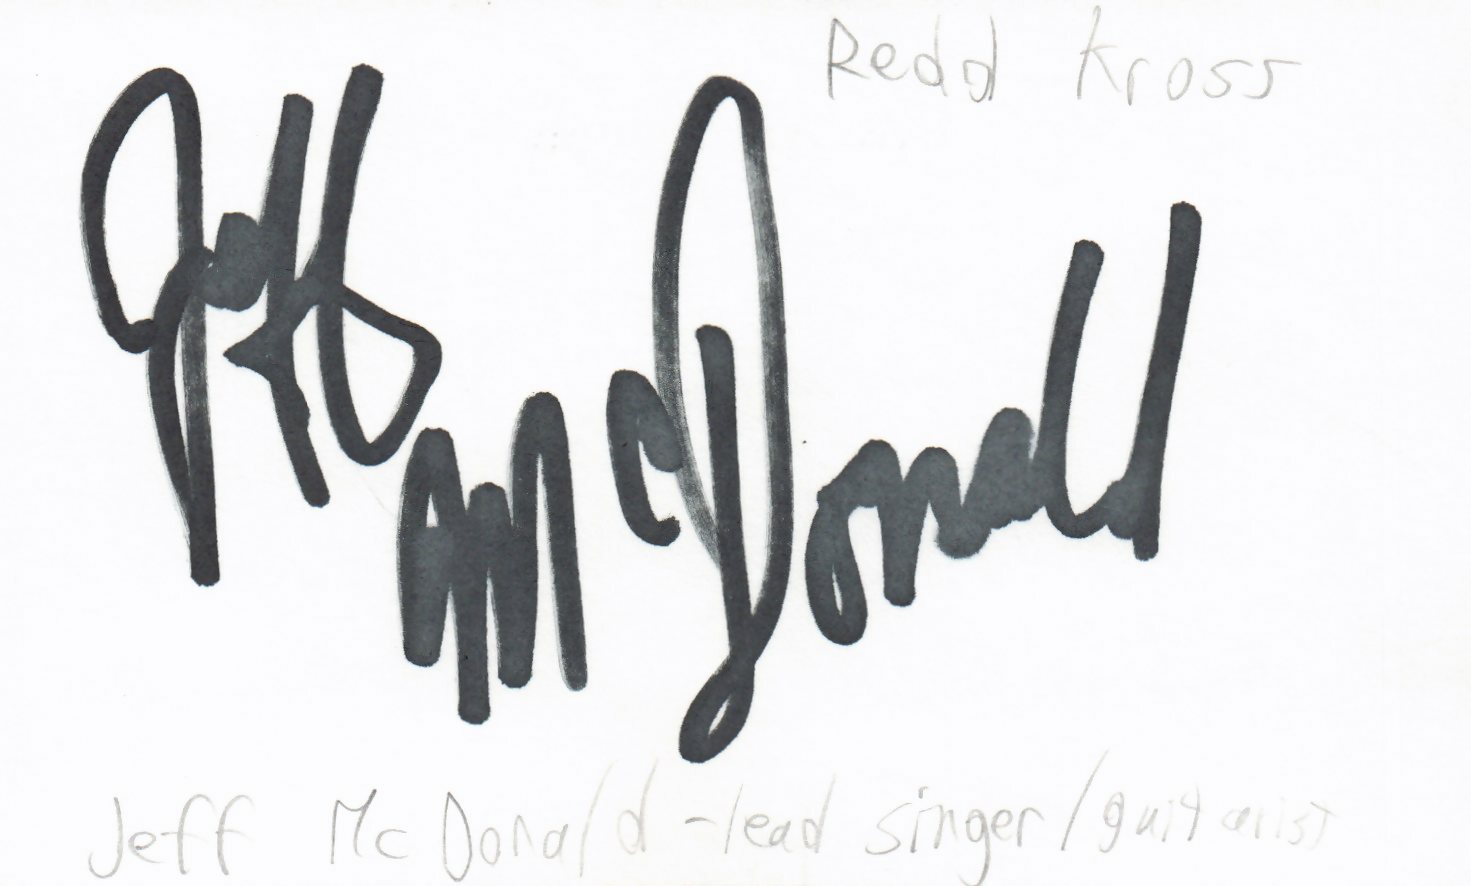 Redd Kross
Jeff McDonald
Jeff McDonald - lead singer/guitarist